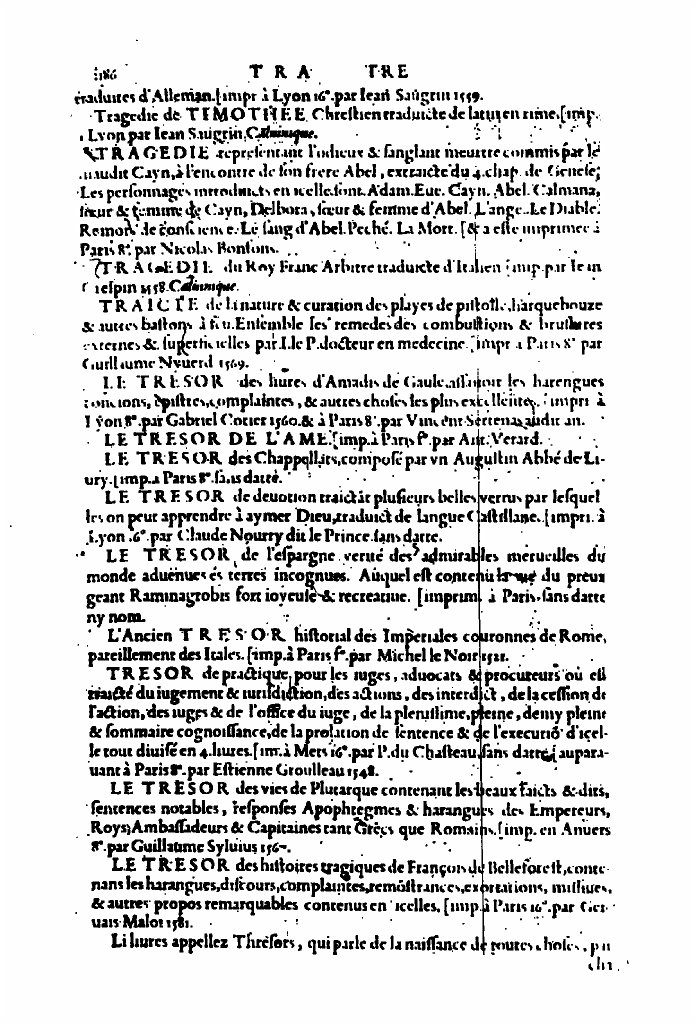 1186 TRA TRE
traduites d'Alleman. [impr à Lyon 16°. par Iean Saugrin 1559.
Tragedie de TIMOTHEE Chrestien traduicte de latin en rime. [imp.
à Lyon par Iean Saugrin. Caluinique.
TRAGEDIE representant l'odieux & sanglant meurtre commis par le
maudit Cayn, à l'encontre de son frere Abel, extraicte du 4. chap. de Genese;
Les personnages introduicts en icelle sont. Adam. Eue. Cayn. Abel. Calmana,
sœur & femme de Cayn, Delbora, sœur & femme d'Abel. L'ange. Le Diable.
Remors de conscience. Le sang d'Abel. Peché. La Mort. [& a esté imprimee à
Paris 8°. par Nicolas Bonfons.
TRAGEDIE du Roy Franc Arbitre traduicte d'Italien [imp. par Iean
Crespin 1558. Caluinique.
TRAICTE de la nature & curation des playes de pistolle, harquebouze
& autres bastons à feu. Ensemble les remedes des combustions & bruslures
externes & superficielles par I. le P. docteur en medecine. [impr a Paris 8° par
Guillaume Nyuerd 1569.
LE TRESOR des liures d'Amadis de Gaule, assauoir les harengues
concions, epistres, complaintes, & autres choses les plus excellentes. [impri à
Lyon 8°. par Gabriel Cotier 1560. & à Paris 8°. par Vincent Sertenas audit an.
LE TRESOR DE L'AME. [imp. à Paris f°. par Ant. Verard.
LE TRESOR des Chappellets, composé par vn Augustin Abbé de Li-
ury. [imp. a Paris 8°. sans datte.
LE TRESOR de deuotion traictāt plusieurs belles vertus par lesquel
les on peut apprendre à aymer Dieu, traduict de langue Castillane. [impri. à
Lyon 16°. par Claude Nourry dit le Prince. sans datte.
LE TRESOR de l'espargne verité des admirables merueilles du
monde aduenues és terres incognues. Auquel est contenu la vie du preux
geant Raminagrobis fort ioyeuse & recreatiue. [imprim. à Paris. sans datte
ny nom.
L'Ancien TRESOR historial des Imperiales couronnes de Rome,
pareillement des Itales. [imp. à Paris f°. par Michel le Noir 1521.
TRESOR de practique, pour les iuges, aduocats & procureurs où est
traicté du iugement & iurisdiction, des actions, des interdict, de la cession de
l'action, des iuges & de l'office du iuge, de la plenissime, pleine, demy pleine
& sommaire cognoissance, de la prolation de sentence & de l'executiō d'icel-
le tout diuisé en 4. liures. [im. à Mets 16°. par P. du Chasteau, sans datte, [aupara-
uant à Paris 8°. par Estienne Groulleau 1548.
LE TRESOR des vies de Plutarque contenant les beaux faicts & dits,
sentences notables, responses Apophtegmes & harangues des Empereurs,
Roys, Ambassadeurs & Capitaines tant Grecs que Romains. [imp. en Anuers
8°. par Guillaume Syluius
LE TRESOR des histoires tragiques de François de Belleforest, conte-
nans les harangues, discours, complaintes, remōstrances, exortations, missiues,
& autres propos remarquables contenus en icelles. [imp. à Paris 16°. par Ger-
uais Malot 1581.
Li liures appellez Thresors, qui parle de la naissance de toutes choses,